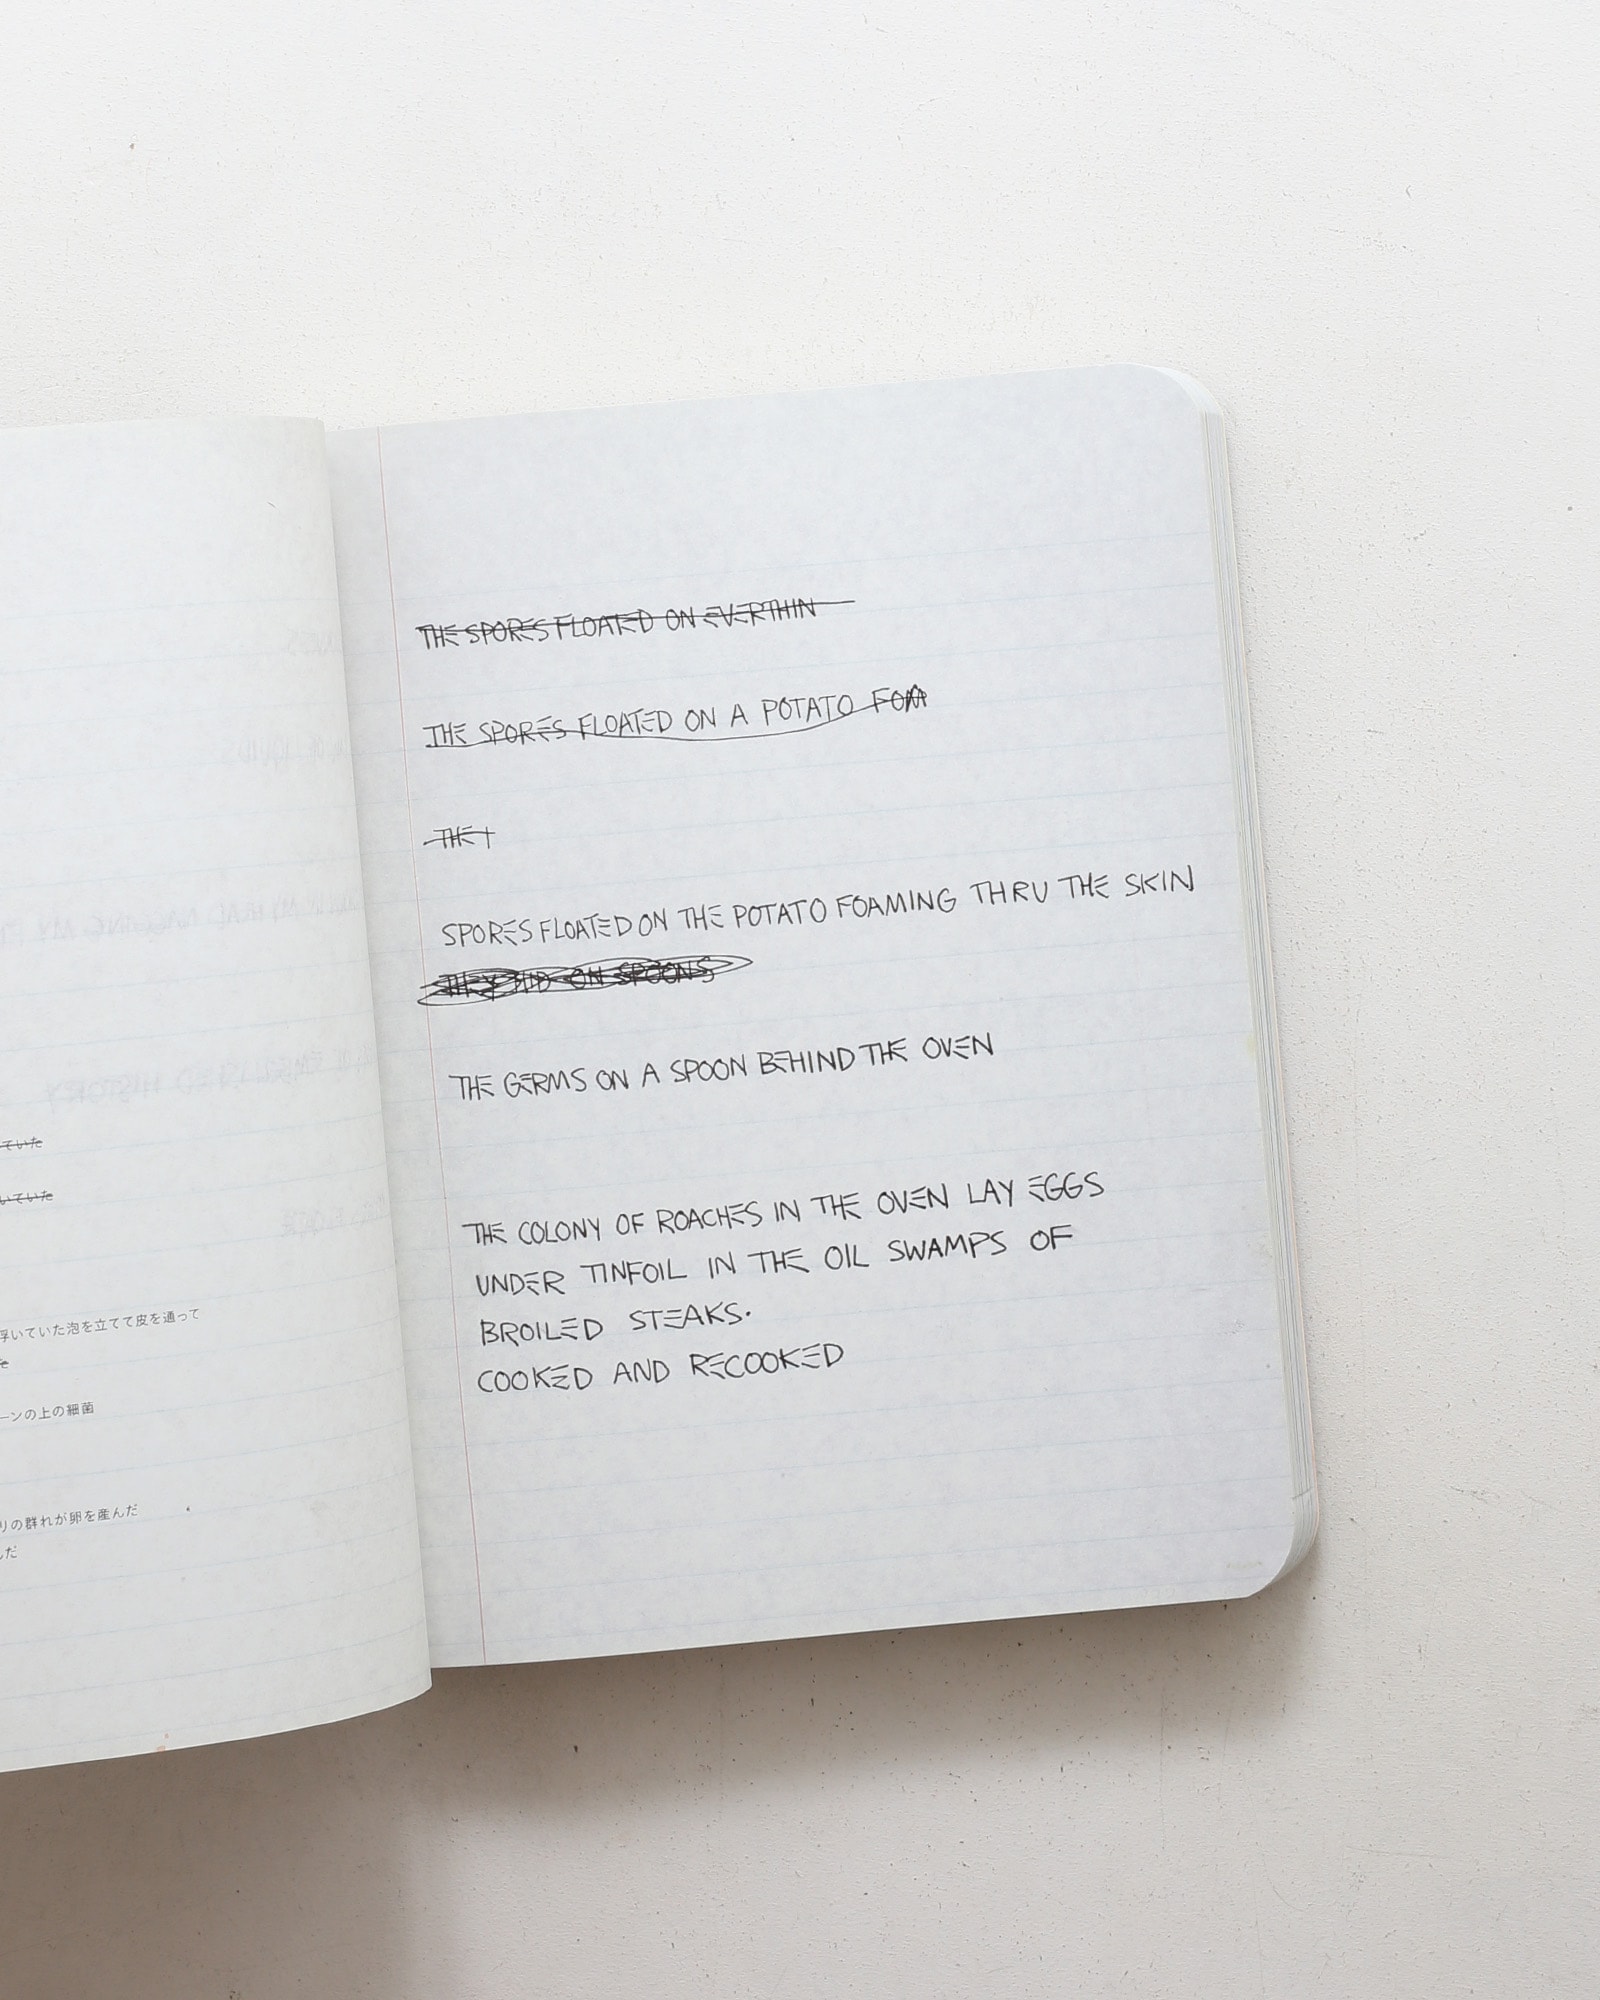 ていた
いていた
浮いていた泡を立てて皮を通って
た
ーンの上の細菌
リの群れが卵を産んだ
んだ
THE SPORES FLOATED ON EVERTHIN
THE SPORES FLOATED ON A POTATO FOM
THE
SPORES FLOATED ON THE POTATO FOAMING THRU THE SKIN
THEY HID ON SPOONS
THE GERMS ON A SPOON BEHIND THE OVEN
THE COLONY OF ROACHES IN THE OVEN LAY EGGS
UNDER TINFOIL IN THE OIL SWAMPS OF
BROILED STEAKS.
COOKED AND RECOOKED